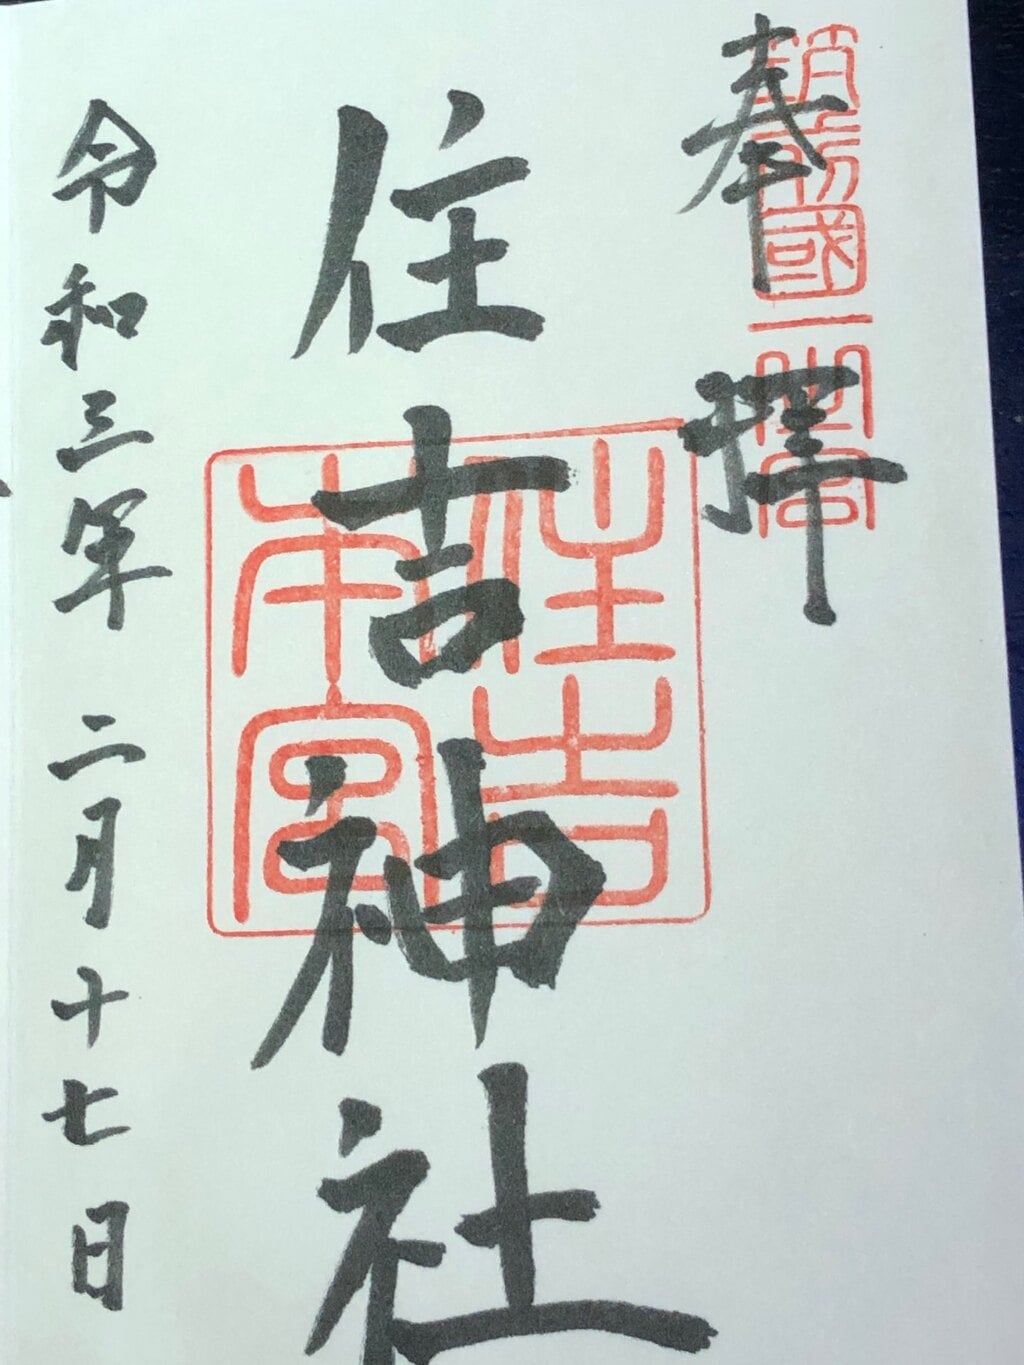 筑前國一之宮
奉拝
住吉神社
住吉
本宮
令和三年二月十七日